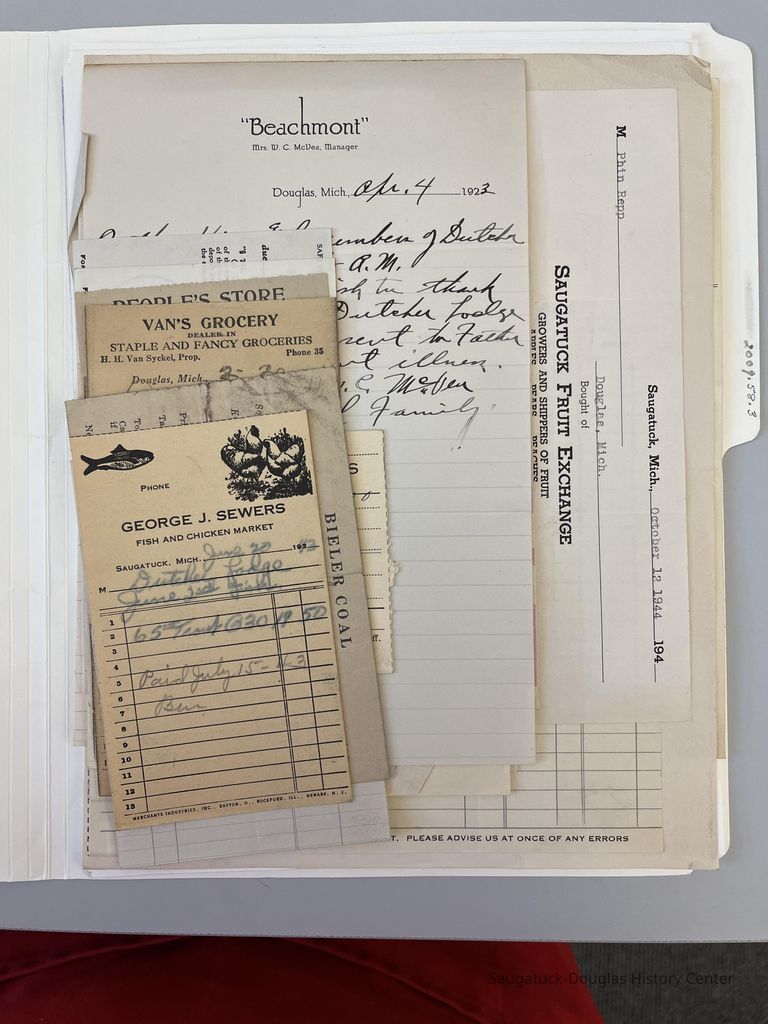 "Beachmont"
Mrs. W. C. McVea, Manager
Douglas, Mich., Apr. 4 1923
members of Dutcher
A.M.
wish to thank
Dutcher Lodge
sent to Father
illness.
McVea
Family
PEOPLE'S STORE
VAN'S GROCERY
DEALER IN
STAPLE AND FANCY GROCERIES
H. H. Van Syckel, Prop. Phone 35
Douglas, Mich.,
BIELER COAL
PHONE
GEORGE J. SEWERS
FISH AND CHICKEN MARKET
SAUGATUCK, MICH. June 20 1943
M Dutcher Lodge
June
1
2 65 @30 19 50
3
4
5 Paid July 15-43
6 Ben
7
8
9
10
11
12
13
MERCHANTS INDUSTRIES, INC., DAYTON, O., ROCKFORD, ILL., NEWARK, N. J.
Saugatuck, Mich., October 12 1944 194
M Phin Repp
Douglas, Mich.
Bought of
SAUGATUCK FRUIT EXCHANGE
GROWERS AND SHIPPERS OF FRUIT
APPLES PEARS PEACHES
PLEASE ADVISE US AT ONCE OF ANY ERRORS
2009.58.3
Saugatuck-Douglas History Center